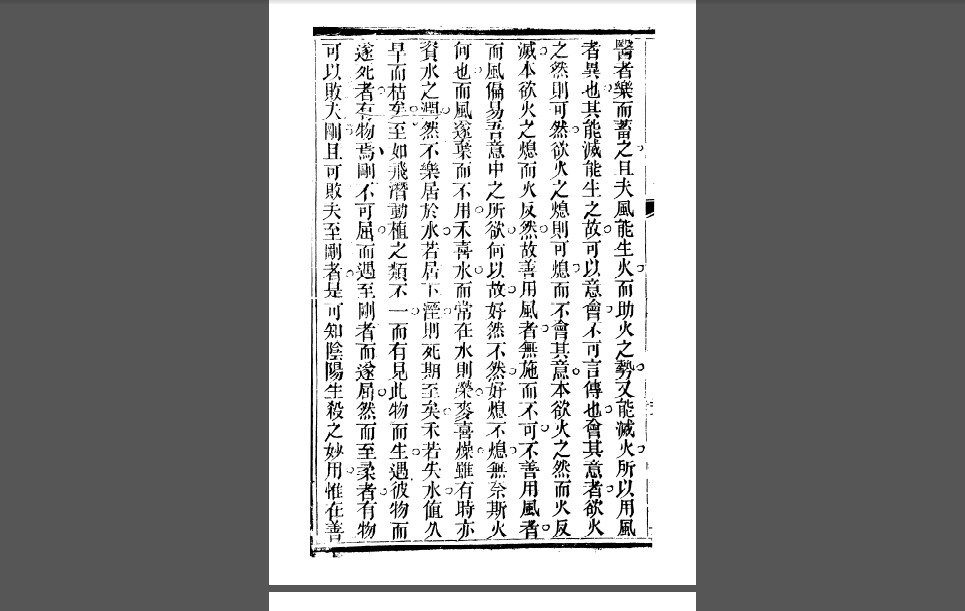 醫者樂而蓄之且夫風能生火而助火之勢又能滅火所以用風
者異也其能滅能生之故可以意會不可言傳也會其意者欲火
之然則可然欲火之熄則可熄而不會其意本欲火之然而火反
滅本欲火之熄而火反然故善用風者無施而不可不善用風者
而風偏易吾意中之所欲何以故好然不然好熄不熄無奈斯火
何也而風遂棄而不用禾喜水而常在水則榮麥喜燥雖有時亦
資水之潤然不樂居於水若居下溼則死期至矣禾若失水值久
旱而枯矣至如飛潛動植之類不一而有見此物而生遇彼物而
遂死者有物焉剛不可屈而遇至剛者而遂屈然而至柔者有物
可以敗大剛且可敗夫至剛者是可知陰陽生殺之妙用惟在善